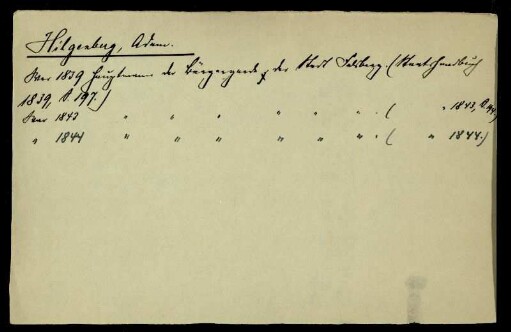 Hilgenberg, Adam.
War 1839 Hauptmann der Bürgergarde der Stadt (Staatshandbuch
1839, S. 197.)
War 1843 " " " " " " " ( " 1843, S.
" 1844 " " " " " " " ( " 1844.)